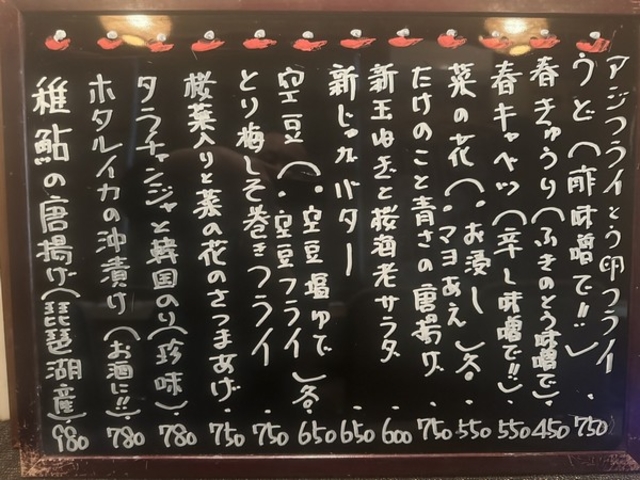 アジフライ フライ
うど（酢味噌で!!）・750
春きゅうり（ふきのとう味噌で）・450
春キャベツ（辛し味噌で!!）・550
菜の花（・お浸し ・マヨあえ）各・550
たけのこと青さの唐揚げ・750
新玉ねぎと桜海老サラダ・600
新じゃがバター・650
空豆（・空豆塩ゆで ・空豆フライ）各・650
とり梅しそ巻きフライ・750
桜葉入りと菜の花のさつまあげ・750
タラチャンジャと韓国のり（珍味）・780
ホタルイカの沖漬け（お酒に!!）・780
稚鮎の唐揚げ（琵琶湖産）980